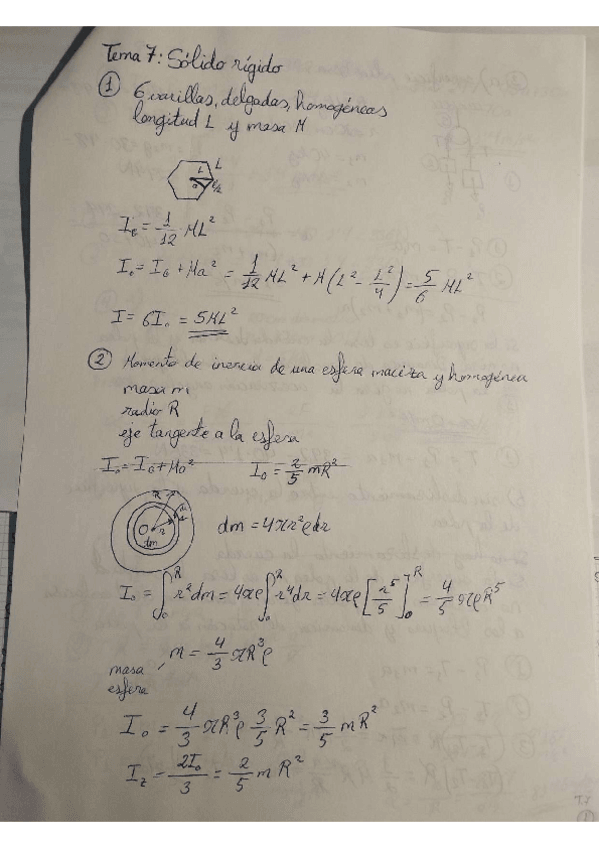 Tema 7: Sólido rígido
① 6 varillas, delgadas, homogéneas
longitud L y masa M
L
L
L/2
I_G = 1/12 ML²
I_o = I_G + Ma² = 1/12 ML² + M(L² - L²/4) = 5/6 ML²
I = 6I_o = 5ML²
② Momento de inercia de una esfera maciza y homogénea
masa m
radio R
eje tangente a la esfera
I_o = I_G + Ma² I_o = 2/5 mR²
R
O r
dm
dm = 4πr²ρdr
I_o = ∫₀ᴿ r²dm = 4πρ ∫₀ᴿ r⁴dr = 4πρ [r⁵/5]₀ᴿ = 4/5 πρR⁵
masa esfera, m = 4/3 πR³ρ
I_o = 4/3 πR³ρ 3/5 R² = 3/5 mR²
I_z = 2I_o/3 = 2/5 mR²
T.7
①